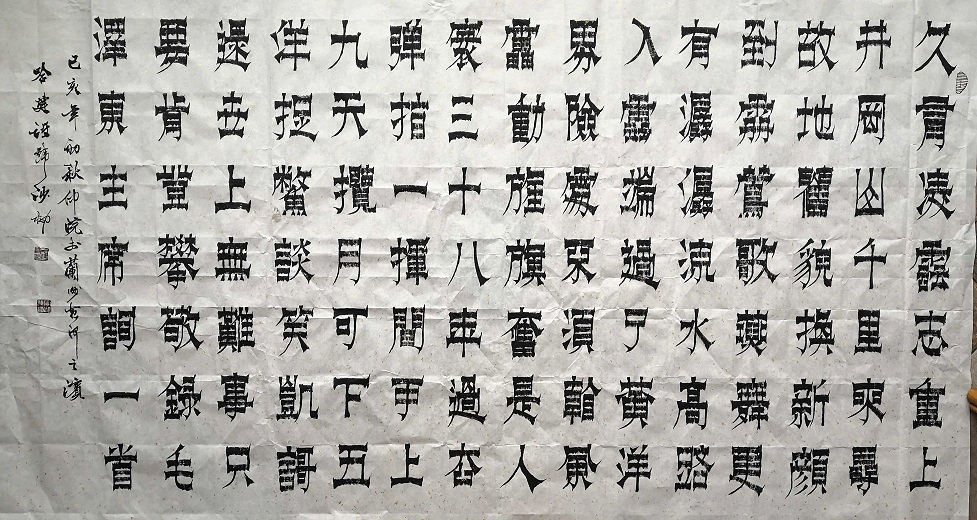 久有凌雲志重上
井岡山千里來尋
故地舊貌換新顏
到處鶯歌燕舞更
有潺潺流水高路
入雲端過了黃洋
界險處不須看風
雷動旌旗奮是人
寰三十八年過去
彈指一揮間可上
九天攬月可下五
洋捉鱉談笑凱歌
還世上無難事只
要肯登攀敬錄毛
澤東主席詞一首
己亥年初秋 蘭西 河之濱
建設 號沙柳